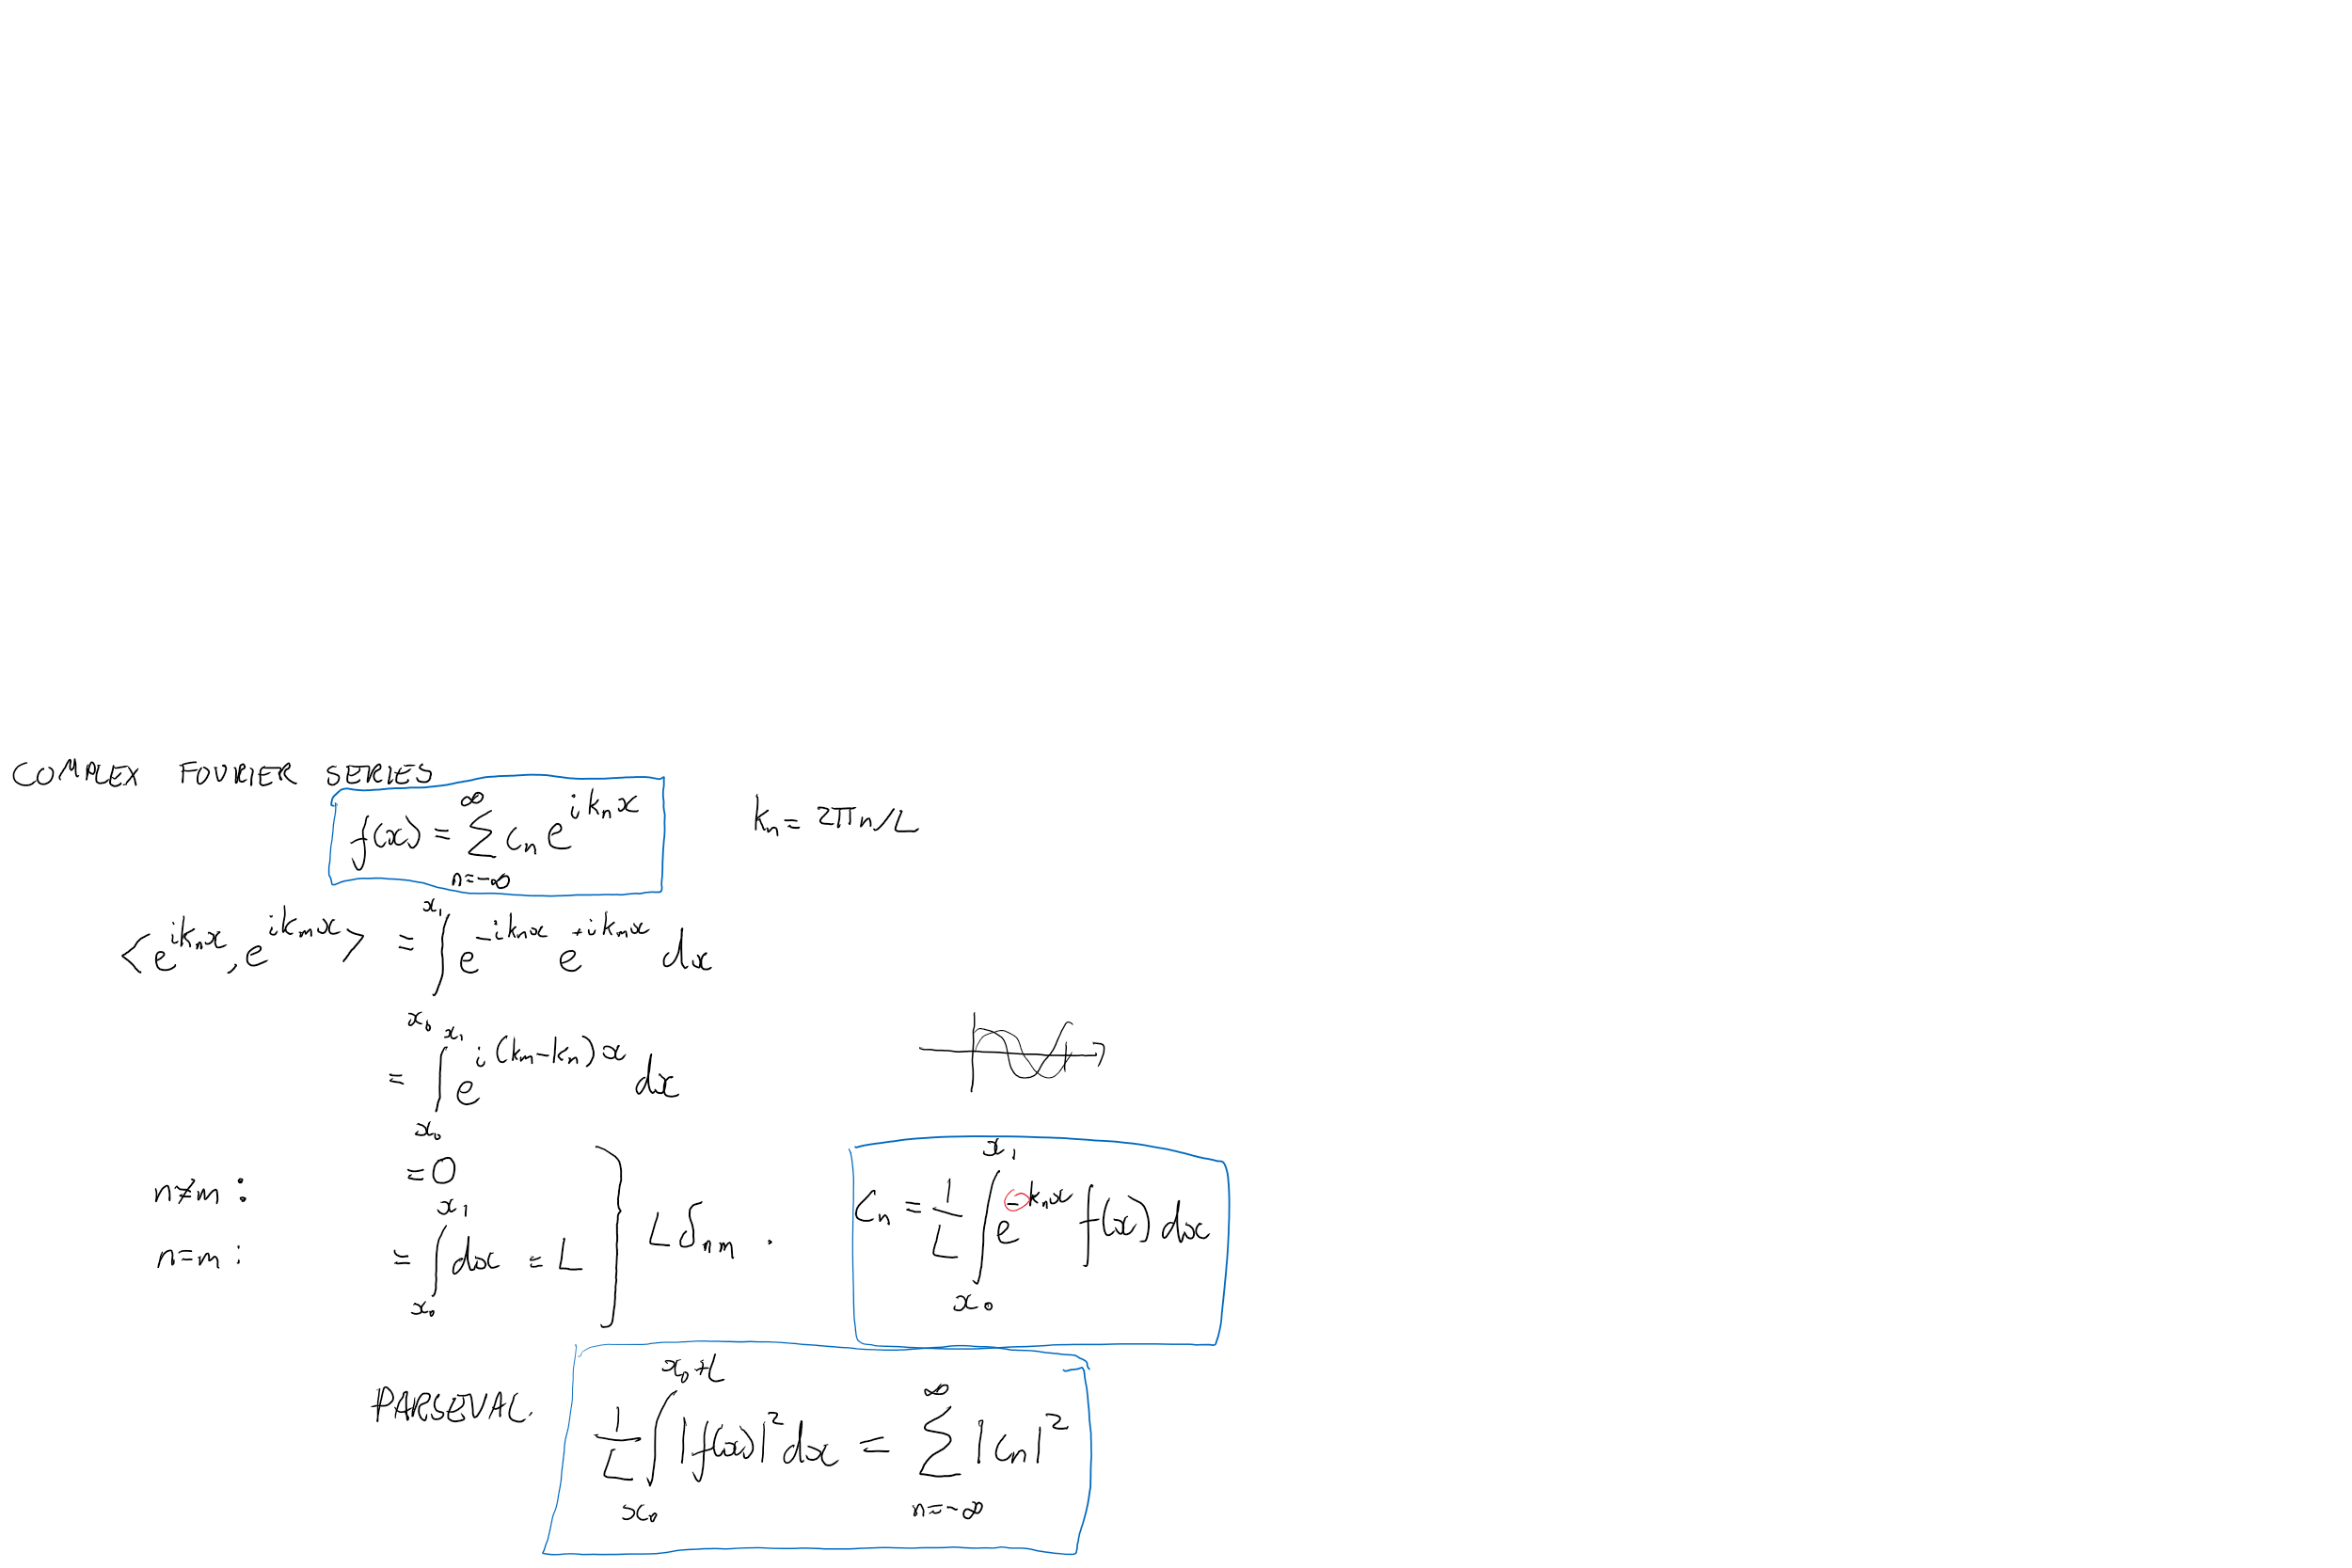 COMPLEX FOURIER SERIES
f(x) = ∑_{n=-∞}^{∞} c_n e^{i k_n x}    k_n = 2πn/L
<e^{ik_n x}, e^{ik_m x}> = ∫_{x_0}^{x_1} e^{-ik_n x} e^{+ik_m x} dx
= ∫_{x_0}^{x_1} e^{i(k_m - k_n)x} dx
n≠m: = 0
n=m: = ∫_{x_0}^{x_1} dx = L } L δ_{nm}.
C_n = 1/L ∫_{x_0}^{x_1} e^{-k_n x} f(x) dx
PARSEVAL. 1/L ∫_{x_0}^{x_0+L} |f(x)|² dx = ∑_{n=-∞}^{∞} |c_n|²